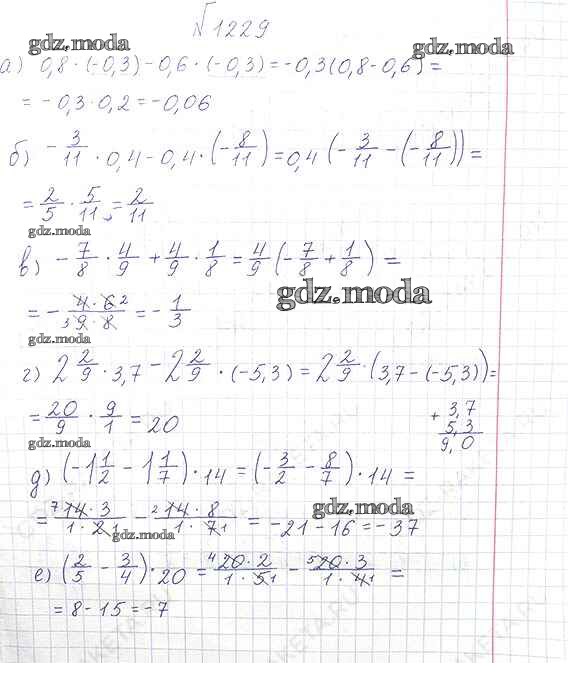 №1229
gdz.moda gdz.moda
а) 0,8 · (-0,3) - 0,6 · (-0,3) = -0,3(0,8 - 0,6) =
= -0,3 · 0,2 = -0,06
б) -3/11 · 0,4 - 0,4 · (-8/11) = 0,4 (-3/11 - (-8/11)) =
= 2/5 · 5/11 = 2/11
gdz.moda
в) -7/8 · 4/9 + 4/9 · 1/8 = 4/9 (-7/8 + 1/8) =
gdz.moda
= - 4 · 6 2 / 3 9 · 8 = -1/3
gdz.moda
г) 2 2/9 · 3,7 - 2 2/9 · (-5,3) = 2 2/9 · (3,7 - (-5,3)) =
= 20/9 · 9/1 = 20
+ 3,7
5,3
9,0
gdz.moda
д) (-1 1/2 - 1 1/7) · 14 = (-3/2 - 8/7) · 14 =
gdz.moda
= 7 14 · 3 / 1 · 2 1 - 2 14 · 8 / 1 · 7 1 = -21 - 16 = -37
gdz.moda
е) (2/5 - 3/4) · 20 = 4 20 · 2 / 1 · 5 1 - 5 20 · 3 / 1 · 4 1 =
= 8 - 15 = -7